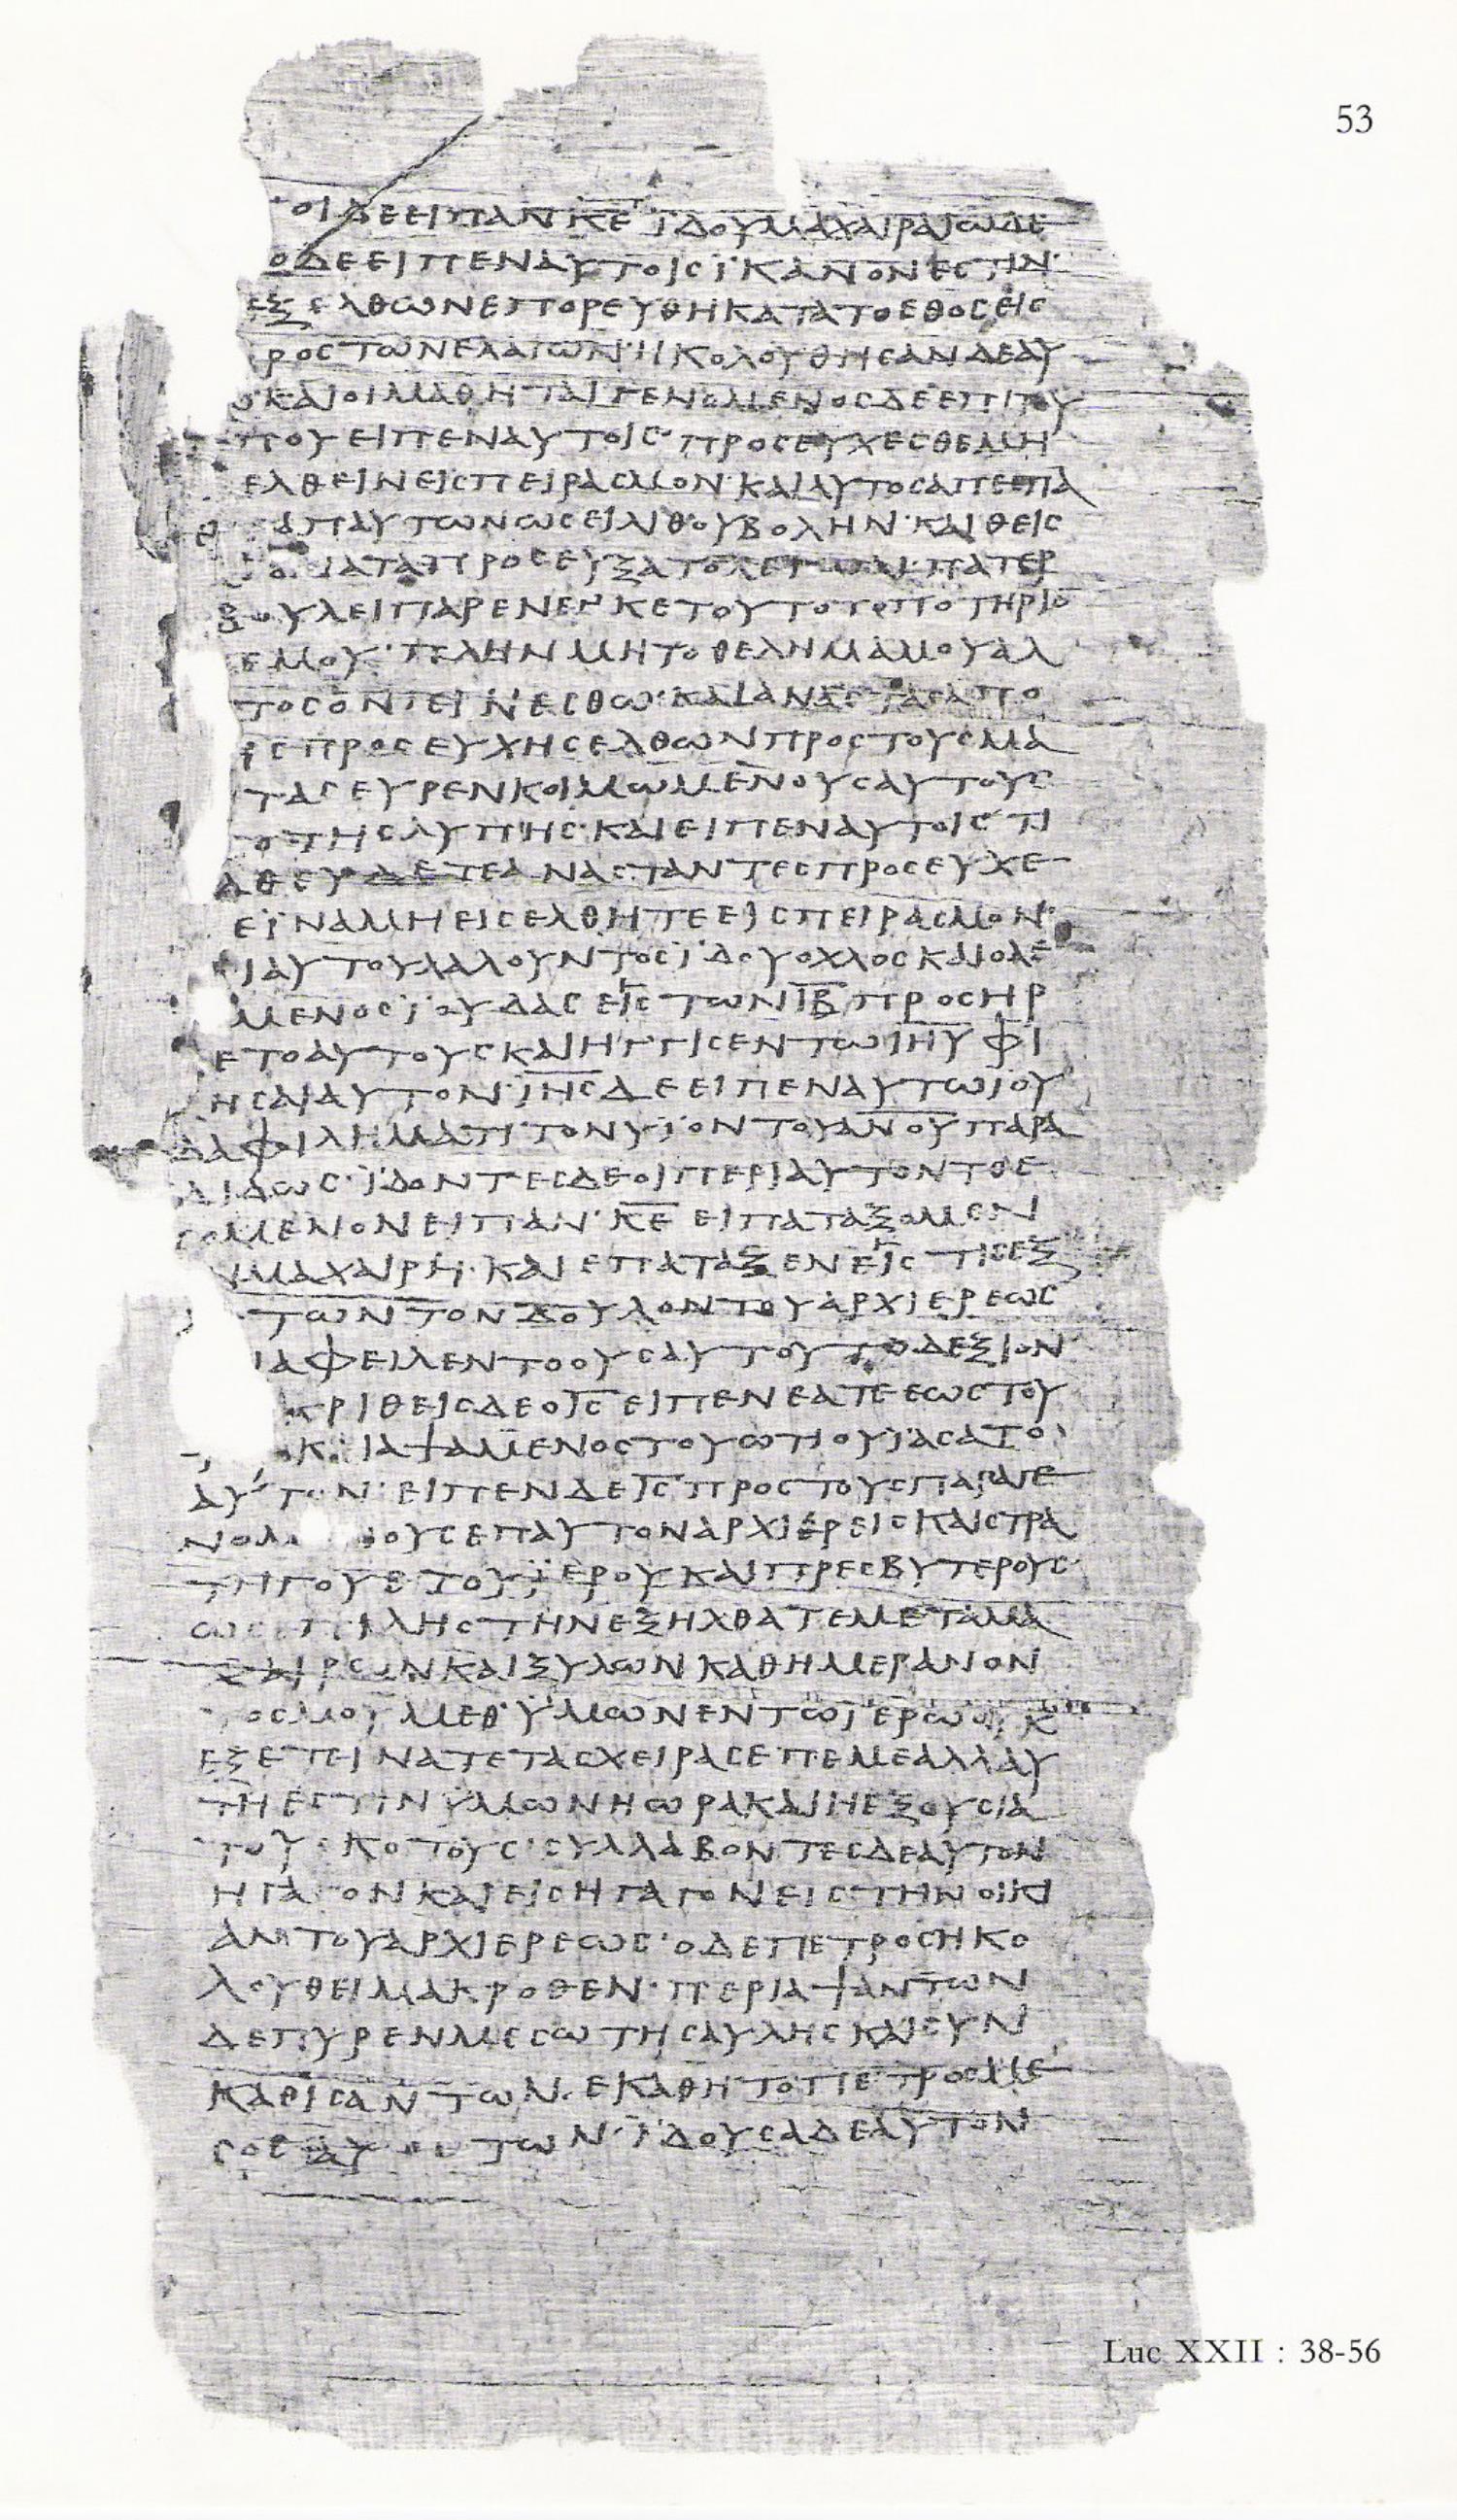 53
ΟΙ ΔΕ ΕΙΠΑΝ Κ̅Ε̅ ΪΔΟΥ ΜΑΧΑΙΡΑΙ ΩΔΕ
Ο ΔΕ ΕΙΠΕΝ ΑΥΤΟΙΣ ΪΚΑΝΟΝ ΕΣΤΙΝ·
ΕΞΕΛΘΩΝ ΕΠΟΡΕΥΘΗ ΚΑΤΑ ΤΟ ΕΘΟΣ ΕΙΣ
ΡΟΣ ΤΩΝ ΕΛΑΙΩΝ· ΗΚΟΛΟΥΘΗΣΑΝ ΔΕ ΑΥ
ΚΑΙ ΟΙ ΜΑΘΗΤΑΙ ΓΕΝΟΜΕΝΟΣ ΔΕ ΕΠΙ ΤΟΥ
ΠΟΥ ΕΙΠΕΝ ΑΥΤΟΙΣ· ΠΡΟΣΕΥΧΕΣΘΕ ΜΗ
ΕΛΘΕΙΝ ΕΙΣ ΠΕΙΡΑΣΜΟΝ· ΚΑΙ ΑΥΤΟΣ ΑΠΕΣΠΑ
ΑΠ ΑΥΤΩΝ ΩΣΕΙ ΛΙΘΟΥ ΒΟΛΗΝ· ΚΑΙ ΘΕΙΣ
ΝΑΤΑ ΠΡΟΣΕΥΞΑΤΟ ΠΑΤΕΡ
ΒΟΥΛΕΙ ΠΑΡΕΝΕΓΚΕ ΤΟΥΤΟ ΤΟ ΠΟΤΗΡΙΟ̅
ΕΜΟΥ· ΠΛΗΝ ΜΗ ΤΟ ΘΕΛΗΜΑ ΜΟΥ ΑΛ
ΤΟ ΣΟΝ ΓΕΙΝΕΣΘΩ· ΚΑΙ ΑΝΑΣΤΑΣ ΑΠΟ
ΗΣ ΠΡΟΣΕΥΧΗΣ ΕΛΘΩΝ ΠΡΟΣ ΤΟΥΣ ΜΑ
ΤΑΣ ΕΥΡΕΝ ΚΟΙΜΩΜΕΝΟΥΣ ΑΥΤΟΥΣ
Ο ΤΗΣ ΛΥΠΗΣ· ΚΑΙ ΕΙΠΕΝ ΑΥΤΟΙΣ ΤΙ
ΑΘΕΥΔΕΤΕ ΑΝΑΣΤΑΝΤΕΣ ΠΡΟΣΕΥΧΕ
Ε ΪΝΑ ΜΗ ΕΙΣΕΛΘΗΤΕ ΕΙΣ ΠΕΙΡΑΣΜΟΝ·
Ι ΑΥΤΟΥ ΛΑΛΟΥΝΤΟΣ ΪΔΟΥ ΟΧΛΟΣ ΚΑΙ Ο ΛΕ
ΜΕΝΟΣ ΪΟΥΔΑΣ ΕΙΣ ΤΩΝ Ι̅Β̅ ΠΡΟΣΗΡ
ΕΤΟ ΑΥΤΟΥΣ ΚΑΙ ΗΓΓΙΣΕΝ ΤΩ Ι̅Η̅Υ̅ ΦΙ
ΗΣΑΙ ΑΥΤΟΝ· Ι̅Η̅Σ̅ ΔΕ ΕΙΠΕΝ ΑΥΤΩ ΪΟΥ
ΔΑ ΦΙΛΗΜΑΤΙ ΤΟΝ ΥΪΟΝ ΤΟΥ Α̅Ν̅Ο̅Υ̅ ΠΑΡΑ
ΔΙΔΩΣ· ΪΔΟΝΤΕΣ ΔΕ ΟΙ ΠΕΡΙ ΑΥΤΟΝ ΤΟ Ε
ΣΟΜΕΝΟΝ ΕΙΠΑΝ· Κ̅Ε̅ ΕΙ ΠΑΤΑΞΟΜΕΝ
Ν ΜΑΧΑΙΡΗ· ΚΑΙ ΕΠΑΤΑΞΕΝ ΕΙΣ ΤΙΣ ΕΞ
ΤΩΝ ΤΟΝ ΔΟΥΛΟΝ ΤΟΥ ΑΡΧΙΕΡΕΩΣ
Ι ΑΦΕΙΛΕΝ ΤΟ ΟΥΣ ΑΥΤΟΥ ΤΟ ΔΕΞΙΟΝ·
ΚΡΙΘΕΙΣ ΔΕ Ο Ι̅Σ̅ ΕΙΠΕΝ ΕΑΤΕ ΕΩΣ ΤΟΥ
ΑΨΑΜΕΝΟΣ ΤΟΥ ΩΤΙΟΥ ΪΑΣΑΤΟ
ΑΥΤΟΝ· ΕΙΠΕΝ ΔΕ Ι̅Σ̅ ΠΡΟΣ ΤΟΥΣ ΠΑΡΑΓΕ
ΝΟΜ ΟΥΣ ΕΠ ΑΥΤΟΝ ΑΡΧΙΕΡΕΙΣ ΚΑΙ ΣΤΡΑ
ΤΗΓΟΥΣ ΤΟΥ ΪΕΡΟΥ ΚΑΙ ΠΡΕΣΒΥΤΕΡΟΥΣ·
ΩΣ ΕΠΙ ΛΗΣΤΗΝ ΕΞΗΛΘΑΤΕ ΜΕΤΑ ΜΑ
ΧΑΙΡΩΝ ΚΑΙ ΞΥΛΩΝ ΚΑΘ ΗΜΕΡΑΝ ΟΝ
ΟΣ ΜΟΥ ΜΕΘ ΫΜΩΝ ΕΝ ΤΩ ΪΕΡΩ ΟΥΚ
ΕΞΕΤΕΙΝΑΤΕ ΤΑΣ ΧΕΙΡΑΣ ΕΠ ΕΜΕ ΑΛΛ ΑΥ
ΤΗ ΕΣΤΙΝ ΫΜΩΝ Η ΩΡΑ ΚΑΙ Η ΕΞΟΥΣΙΑ
ΤΟΥ ΣΚΟΤΟΥΣ· ΣΥΛΛΑΒΟΝΤΕΣ ΔΕ ΑΥΤΟΝ
ΗΓΑΓΟΝ ΚΑΙ ΕΙΣΗΓΑΓΟΝ ΕΙΣ ΤΗΝ ΟΙΚΙ
ΑΝ ΤΟΥ ΑΡΧΙΕΡΕΩΣ· Ο ΔΕ ΠΕΤΡΟΣ ΗΚΟ
ΛΟΥΘΕΙ ΜΑΚΡΟΘΕΝ· ΠΕΡΙΑΨΑΝΤΩΝ
ΔΕ ΠΥΡ ΕΝ ΜΕΣΩ ΤΗΣ ΑΥΛΗΣ ΚΑΙ ΣΥΝ
ΚΑΘΙΣΑΝΤΩΝ· ΕΚΑΘΗΤΟ Ο ΠΕΤΡΟΣ ΜΕ
ΣΟΣ ΑΥΤΩΝ· ΪΔΟΥΣΑ ΔΕ ΑΥΤΟΝ
Luc XXII : 38-56